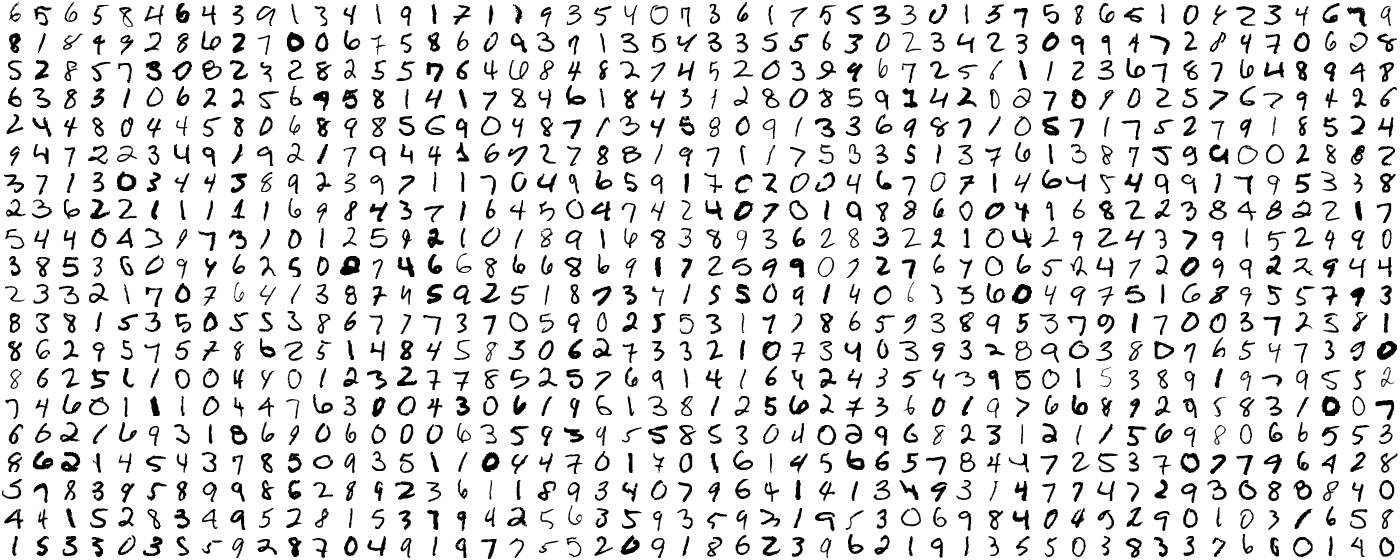 6 5 6 5 8 4 6 4 3 9 1 3 4 1 9 1 7 1 1 9 3 5 4 0 7 3 6 1 7 5 5 3 3 0 1 5 7 5 8 6 5 1 0 4 2 3 4 6 7 9
8 1 8 4 9 2 8 6 2 7 0 0 6 7 5 8 6 0 9 3 7 1 3 5 4 3 3 5 5 6 3 0 2 3 4 2 3 0 9 9 4 7 2 8 4 7 0 6 2 8
5 2 8 5 7 3 0 8 2 3 2 8 2 5 5 7 6 4 6 8 4 8 2 7 4 5 2 0 3 9 9 6 7 2 5 6 1 1 2 3 6 7 8 7 6 4 8 9 4 8
6 3 8 3 1 0 6 2 2 5 6 9 5 8 1 4 1 7 8 4 6 1 8 4 3 1 2 8 0 8 5 9 1 4 2 0 2 7 0 9 0 2 5 7 6 7 9 4 2 6
2 4 4 8 0 4 4 5 8 0 6 8 9 8 5 6 9 0 4 8 7 1 3 4 5 8 0 9 1 3 3 6 9 8 7 1 0 5 7 1 7 5 2 7 9 1 8 5 2 4
9 4 7 2 2 3 4 9 1 9 2 1 7 9 4 4 1 6 7 2 7 8 8 1 9 7 1 1 7 5 3 3 5 1 3 7 6 1 3 8 7 5 9 9 0 0 2 8 8 2
3 7 1 3 0 3 4 4 3 8 9 2 3 9 7 1 1 7 0 4 9 6 5 9 1 7 0 2 0 0 4 6 7 0 7 1 4 6 4 5 4 9 9 1 7 9 5 3 3 8
2 3 6 2 2 1 1 1 1 1 6 9 8 4 3 7 1 6 4 5 0 4 7 4 2 4 0 7 0 1 9 8 8 6 0 0 4 9 6 8 2 2 3 8 4 8 2 2 1 7
5 4 4 0 4 3 9 7 3 1 0 1 2 5 9 2 1 0 1 8 9 1 6 8 3 8 9 3 6 2 8 3 2 2 1 0 4 2 9 2 4 3 7 9 1 5 2 4 9 0
3 8 5 3 6 0 9 4 6 2 5 0 2 7 4 6 6 8 6 6 8 6 9 1 7 2 5 9 9 0 7 2 7 6 7 0 6 5 2 4 7 2 0 9 9 2 2 9 4 4
2 3 3 2 1 7 0 7 6 4 1 3 8 7 4 5 9 2 5 1 8 7 3 7 1 5 5 0 9 1 4 0 6 3 3 6 0 4 9 7 5 1 6 8 9 5 5 7 9 3
8 3 8 1 5 3 5 0 5 5 3 8 6 7 7 7 3 7 0 5 9 0 2 5 5 3 1 7 7 8 6 5 9 3 8 9 5 3 7 9 1 7 0 0 3 7 2 5 8 1
8 6 2 9 5 7 5 7 8 6 2 5 1 4 8 4 5 8 3 0 6 2 7 3 3 2 1 0 7 3 4 0 3 9 3 2 8 9 0 3 8 0 7 6 5 4 7 3 9 0
8 6 2 5 1 1 0 0 4 4 0 1 2 3 2 7 7 8 5 2 5 7 6 9 1 4 1 6 4 2 4 3 5 4 3 9 5 0 1 5 3 8 9 1 9 7 9 5 5 2
7 4 6 0 1 1 1 0 4 4 7 6 3 0 0 4 3 0 6 1 9 6 1 3 8 1 2 5 6 2 7 3 6 0 1 9 7 6 6 8 9 2 9 5 8 3 1 0 0 7
6 6 2 1 6 9 3 1 8 6 9 0 6 0 0 0 6 3 5 9 3 9 5 5 8 5 3 0 4 0 2 9 6 8 2 3 1 2 1 1 5 6 9 8 0 6 6 5 5 3
8 6 2 1 4 5 4 3 7 8 5 0 9 3 5 1 1 0 4 4 7 0 1 7 0 1 6 1 4 5 6 6 5 7 8 4 4 7 2 5 3 7 0 7 7 9 6 4 2 8
5 7 8 3 9 5 8 9 9 8 6 2 8 9 2 3 6 1 1 8 9 3 4 0 7 9 6 4 1 4 1 3 4 9 3 1 4 7 7 4 7 2 9 3 0 8 8 8 4 0
4 4 1 5 2 8 3 4 9 5 2 8 1 5 3 7 9 4 2 5 6 3 5 9 3 5 9 2 1 9 5 3 0 6 9 8 4 0 4 5 2 9 0 1 0 3 1 6 5 8
1 5 3 3 0 3 5 5 9 2 8 7 0 4 9 1 9 7 7 5 5 2 0 9 1 8 6 2 3 9 6 2 1 9 1 3 5 5 0 3 8 3 3 7 6 6 0 1 4 0